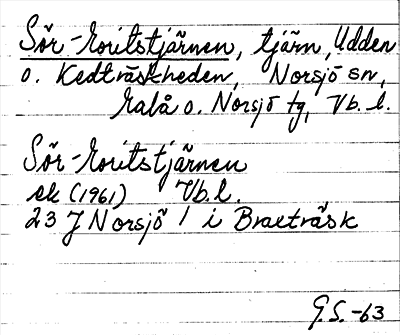 Sör-Moritstjärnen, tjärn, Udden
o. Kedträskheden, Norsjö sn,
Malå o. Norsjö tg, Vb. l.
Sör-Moritstjärnen
ek (1961) Vb. l.
23 J Norsjö 1 i Braxträsk
G.S. -63